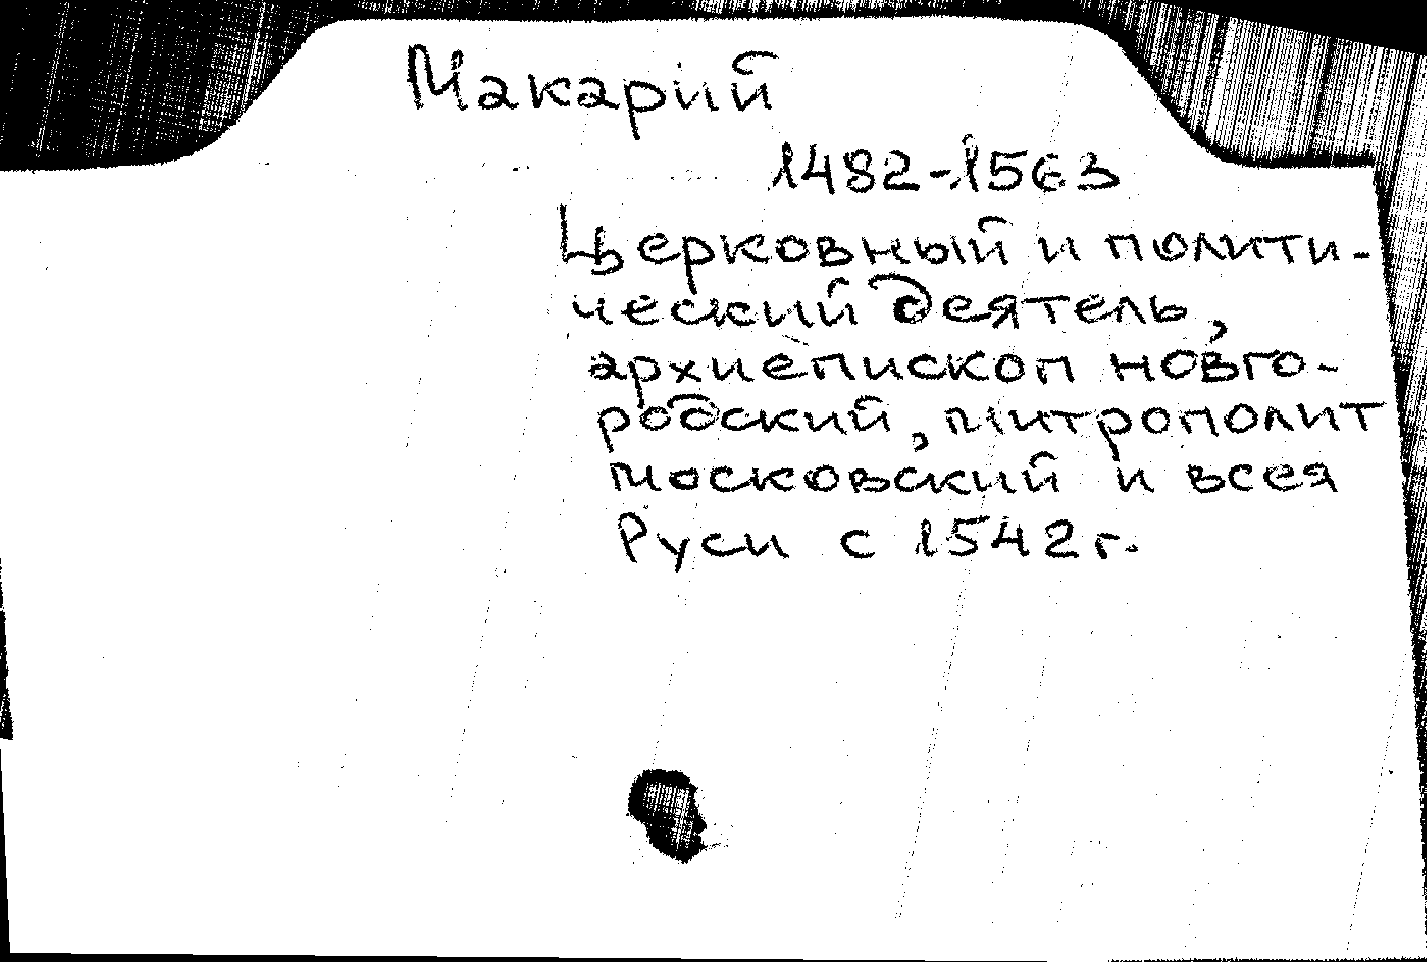 Макарий
1482-1563
Церковный и полити-
ческий деятель,
архиепископ новго-
родский, митрополит
московский и всея
Руси с 1542 г.